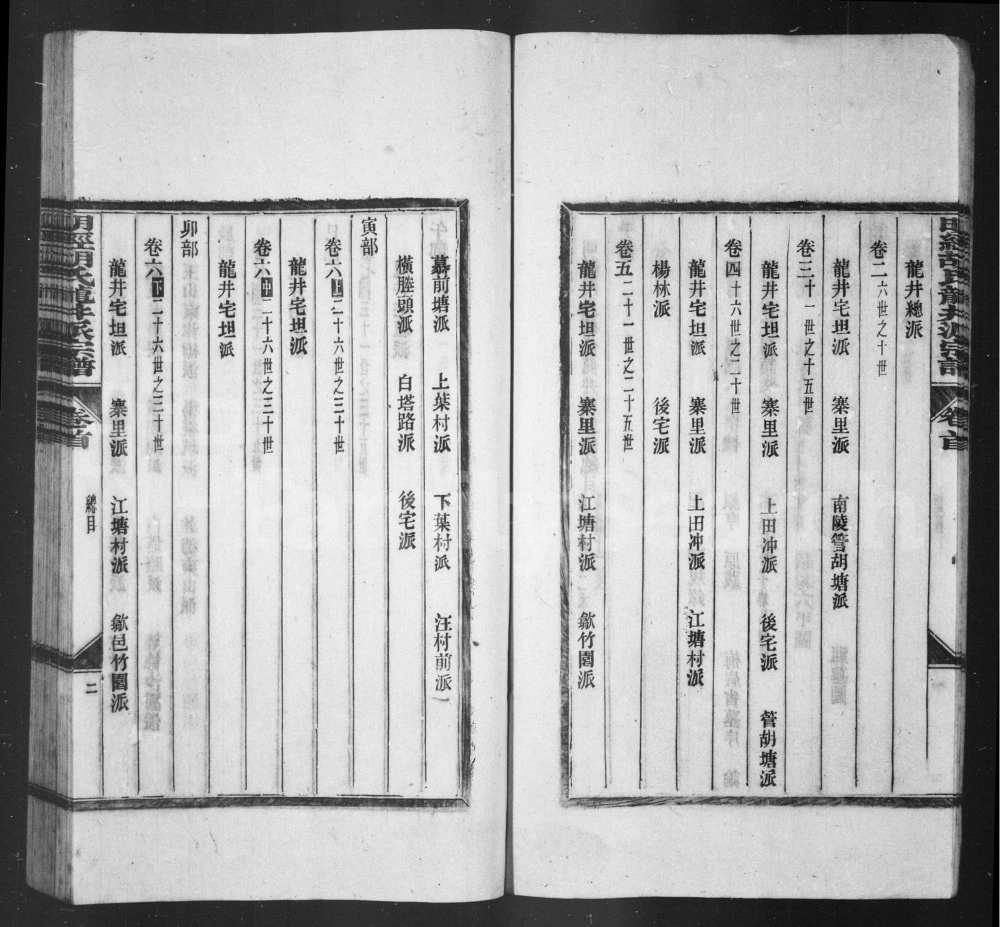 明經胡氏龍井派宗譜 卷首
龍井總派
卷二六世之十世
龍井宅坦派 寨里派 南陵管胡塘派
卷三十一世之十五世
龍井宅坦派 寨里派 上田冲派 後宅派 管胡塘派
卷四十六世之二十世
龍井宅坦派 寨里派 上田冲派 江塘村派
楊林派 後宅派
卷五二十一世之二十五世
龍井宅坦派 寨里派 江塘村派 歙竹園派
慕前塘派 上葉村派 下葉村派 汪村前派
橫塍頭派 白塔路派 後宅派
寅部
卷六上二十六世之三十世
龍井宅坦派
卷六中二十六世之三十世
龍井宅坦派
卯部
卷六下二十六世之三十世
龍井宅坦派 寨里派 江塘村派 歙邑竹園派
明經胡氏龍井派宗譜 卷首 總目 二